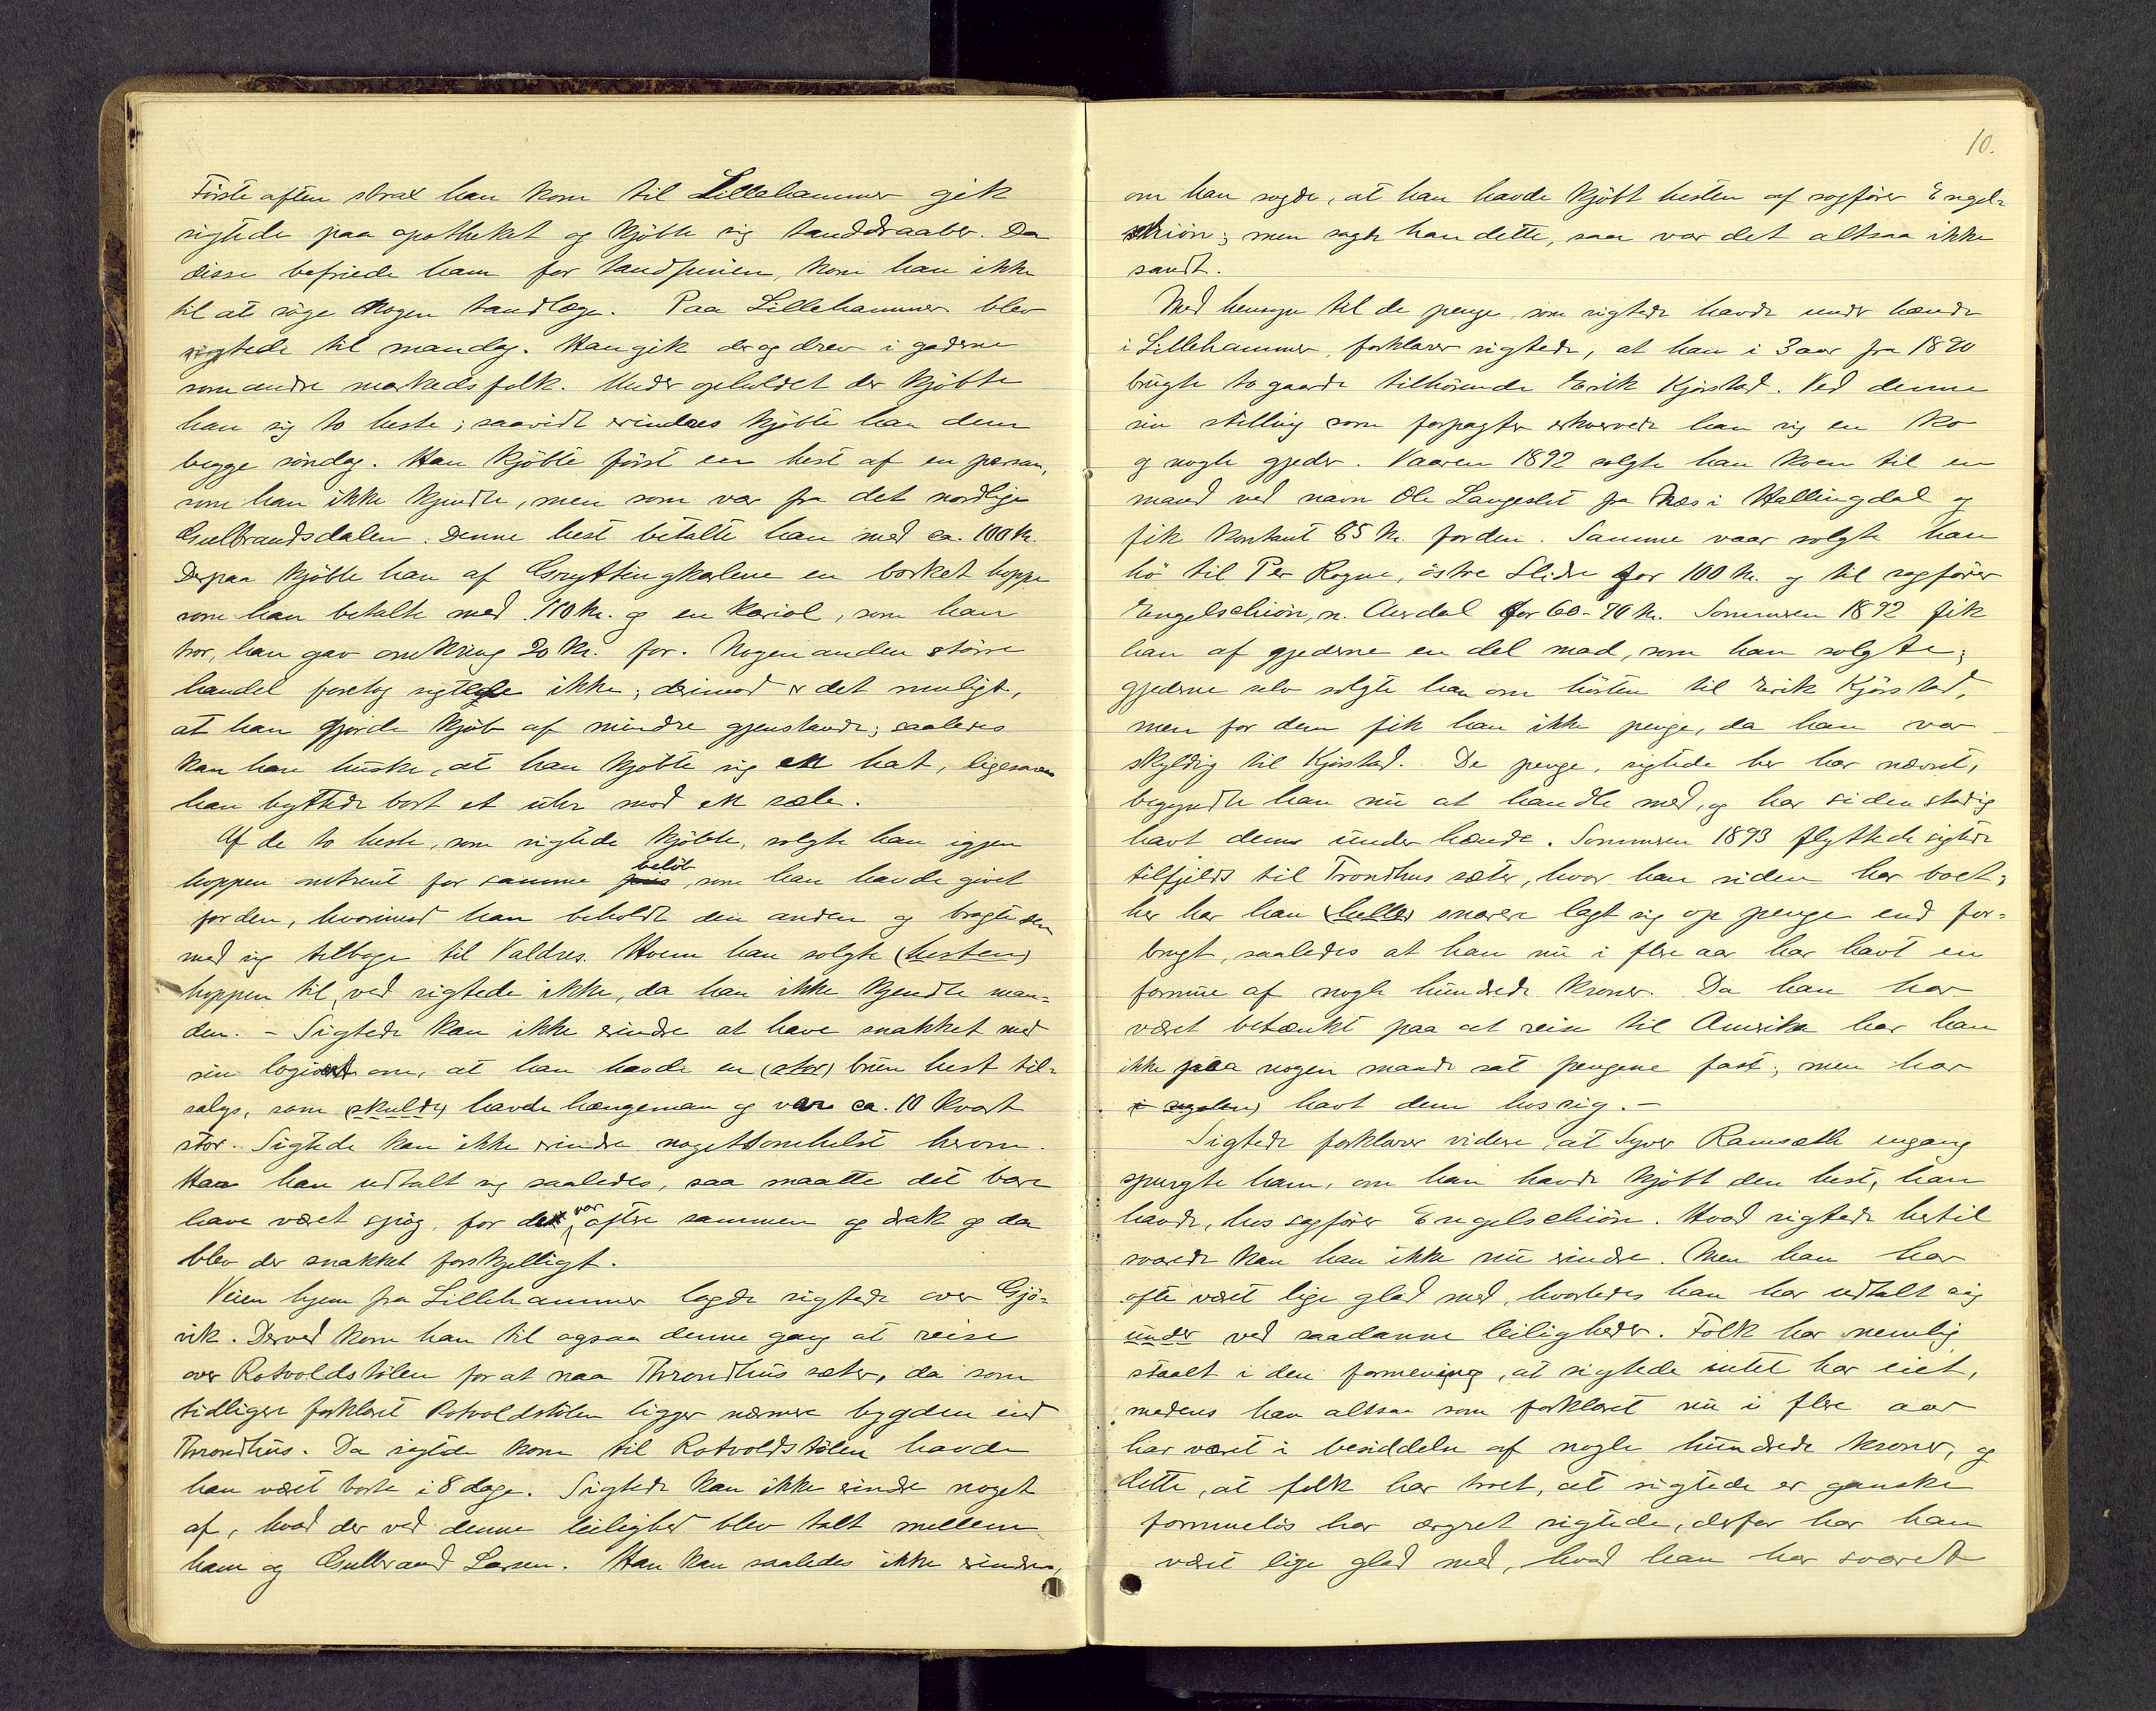 Første aften strax han kom til Lillehammer gik
sigtede paa apotheket og kjöbte sig tanddraaber. Da
disse befriede ham for tandpinen, kom han ikke
til at söge nogen tandlæge. Paa Lillehammer blev
sigtede til mandag. Han gik der og drev i gaderne
som andre markedsfolk. Under opholdet der kjöbte
han sig to heste; saavidt erindres kjöbte han dem
begge söndag. Han kjöbte först en hest af en person,
som han ikke kjendte, men som var fra det nordlige
Gulbrandsdalen. Denne hest betalte han med ca. 100 kr.
Derpaa kjöbte han af Gryttingkarlene en borket hoppe
som han betalte med 110 kr. og en kariol, som han
tror, han gav omkring 20 kr. for. Nogen anden större
handel foretog sigtede ikke; derimod er det muligt,
at han gjorde kjöb af mindre gjenstande; saaledes
kan han huske, at han kjöbte sig en hat, ligesom
han byttede bort et uhr mod en sæle.
Af de to heste, som sigtede kjöbte, solgte han igjen
hoppen omtrent for samme pris belöb, som han havde givet
for den, hvorimod han beholdt den anden og bragte den
med sig tilbage til Valdres. Hvem han solgte (hesten)
hoppen til, ved sigtede ikke, da han ikke kjendte man-
den. - Sigtede kan ikke erindre at have snakket med
sin logivert om, at han havde en (stor) brun hest til-
salgs, som (skulde) havde hængeman og var ca. 10 kvart
stor. Sigtede kan ikke erindre nogetsomhelst herom.
Har han udtalt sig saaledes, saa maatte det bare
have været spög, for de var oftere sammen og drak og da
blev der snakket forskjelligt.
Veien hjem fra Lillehammer lagde sigtede over Gjö-
vik. Derved kom han til ogsaa denne gang at reise
over Rotvoldstölen for at naa Throndhus sæter, da som
tidligere forklaret Rotvoldstölen ligger nærmere bygden end
Throndhus. Da sigtede kom til Rotvoldstölen havde
han været borte i 8 dage. Sigtede kan ikke erindre noget
af, hvad der ved denne leilighed blev talt mellem
ham og Gulbrand Larsen. Han kan saaledes ikke erindre,
10.
om han sagde, at han havde kjöbt hesten af sagförer Engel-
schiön; men sagde han dette, saa var det altsaa ikke
sandt.
Med hensyn til de penge, som sigtede havde under hænde
i Lillehammer, forklarer sigtede, at han i 3 aar fra 1890
brugte to gaarde tilhörende Erik Kjörstad. Ved denne
sin stilling som forpagter erhvervede han sig en ko
og nogle gjeder. Vaaren 1892 solgte han koen til en
mand ved navn Ole Langeslet fra Næs i Hallingdal og
fik kontant 65 kr. for den. Samme vaar solgte han
hö til Per Rogne, östre Slidre for 100 kr. og til sagförer
Engelschiön, n. Aurdal for 60-70 kr. Sommeren 1892 fik
han af gjederne en del mad, som han solgte;
gjederne selv solgte han om hösten til Erik Kjörstad,
men for dem fik han ikke penge, da han var
skyldig til Kjörstad. De penge, sigtede her har nævnt,
begyndte han nu at handle med, og har siden stadig
havt dem under hænde. Sommeren 1893 flyttede sigtede
tilfjelds til Trondhus sæter, hvor han siden har boet;
her har han (heller) snarere lagt sig op penge end for-
brugt, saaledes at han nu i flere aar har havt en
formue af nogle hundrede kroner. Da han har
været betænkt paa at reise til Amerika har han
ikke paa nogen maade sat pengene fast, men har
havt dem hos sig. -
Sigtede forklarer videre, at Syver Ramsæth engang
spurgte ham, om han havde kjöbt den hest, han
havde, hos sagförer Engelschiön. Hvad sigtede hertil
svarede kan han ikke nu erindre. Men han har
ofte været lige glad med, hvorledes han har udtalt sig
under ved saadanne leiligheder. Folk har nemlig
staaet i den formening, at sigtede intet har eiet,
medens han altsaa som forklaret nu i flere aar
har været i besiddelse af nogle hundrede kroner, og
dette, at folk har troet, at sigtede er ganske
formuelös har ærgret sigtede, derfor har han
været lige glad med, hvad han har svaret